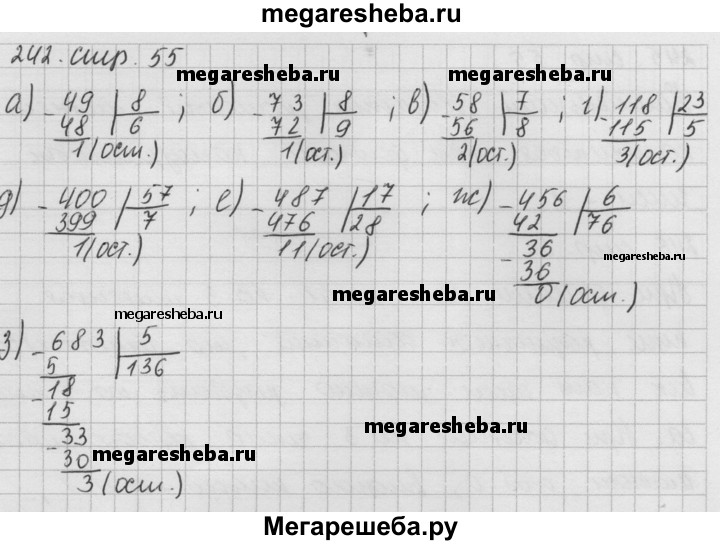 megaresheba.ru
242. стр. 55
megaresheba.ru
megaresheba.ru
а) - 49 | 8 ; б) - 73 | 8 ; в) - 58 | 7 ; г) - 118 | 23
48 | 6 72 | 9 56 | 8 115 | 5
1(ост.) 1(ост.) 2(ост.) 3(ост.)
д) - 400 | 57 ; е) - 487 | 17 ; ж) - 456 | 6
399 | 7 476 | 28 42 | 76
1(ост.) 11(ост.) - 36
megaresheba.ru
36
megaresheba.ru
0(ост.)
megaresheba.ru
з) - 683 | 5
5 | 136
- 18
15
megaresheba.ru
- 33
megaresheba.ru
30
3(ост.)
Мегарешеба.ру